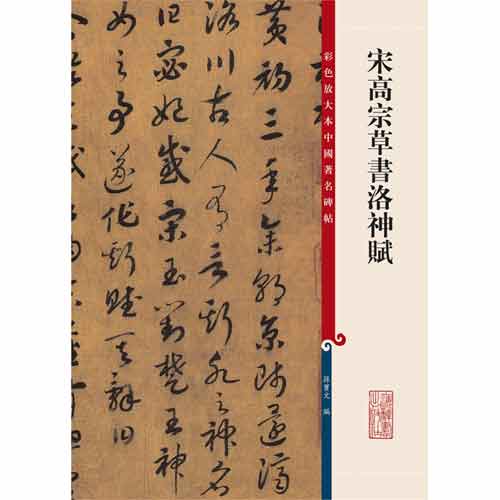 宋高宗草書洛神賦
彩色放大本中國著名碑帖
孫寶文 編
黄初三年余朝京師還濟
洛川古人有言斯水之神名
曰宓妃感宋玉對楚王神
女之事遂作斯賦其辭曰